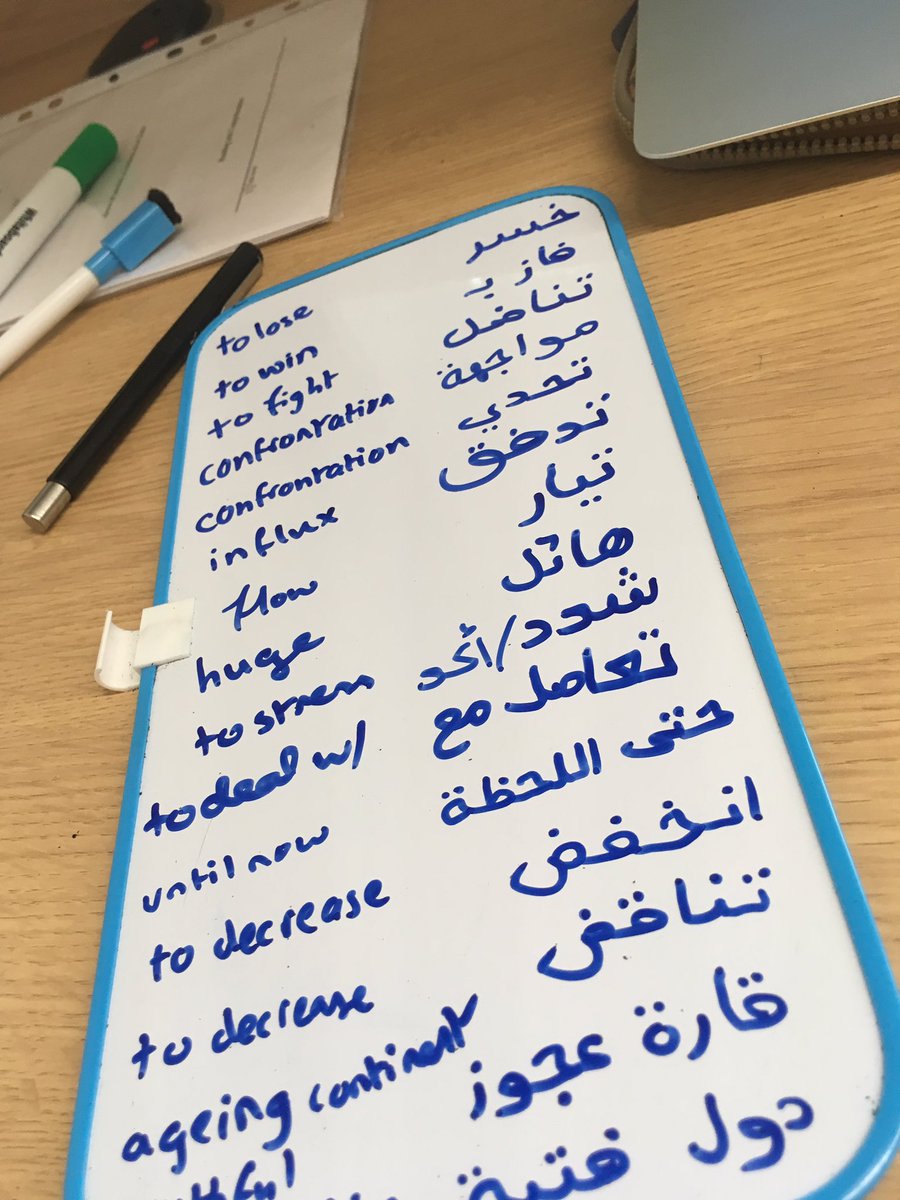 to lose خسر
to win فاز بـ
to fight تناضل
confrontation مواجهة
confrontation تحدي
influx تدفق
flow تيار
huge هائل
to stress شدد/أكد
to deal w/ تعامل مع
until now حتى اللحظة
to decrease انخفض
to decrease تناقض
ageing continent قارة عجوز
دول فتية